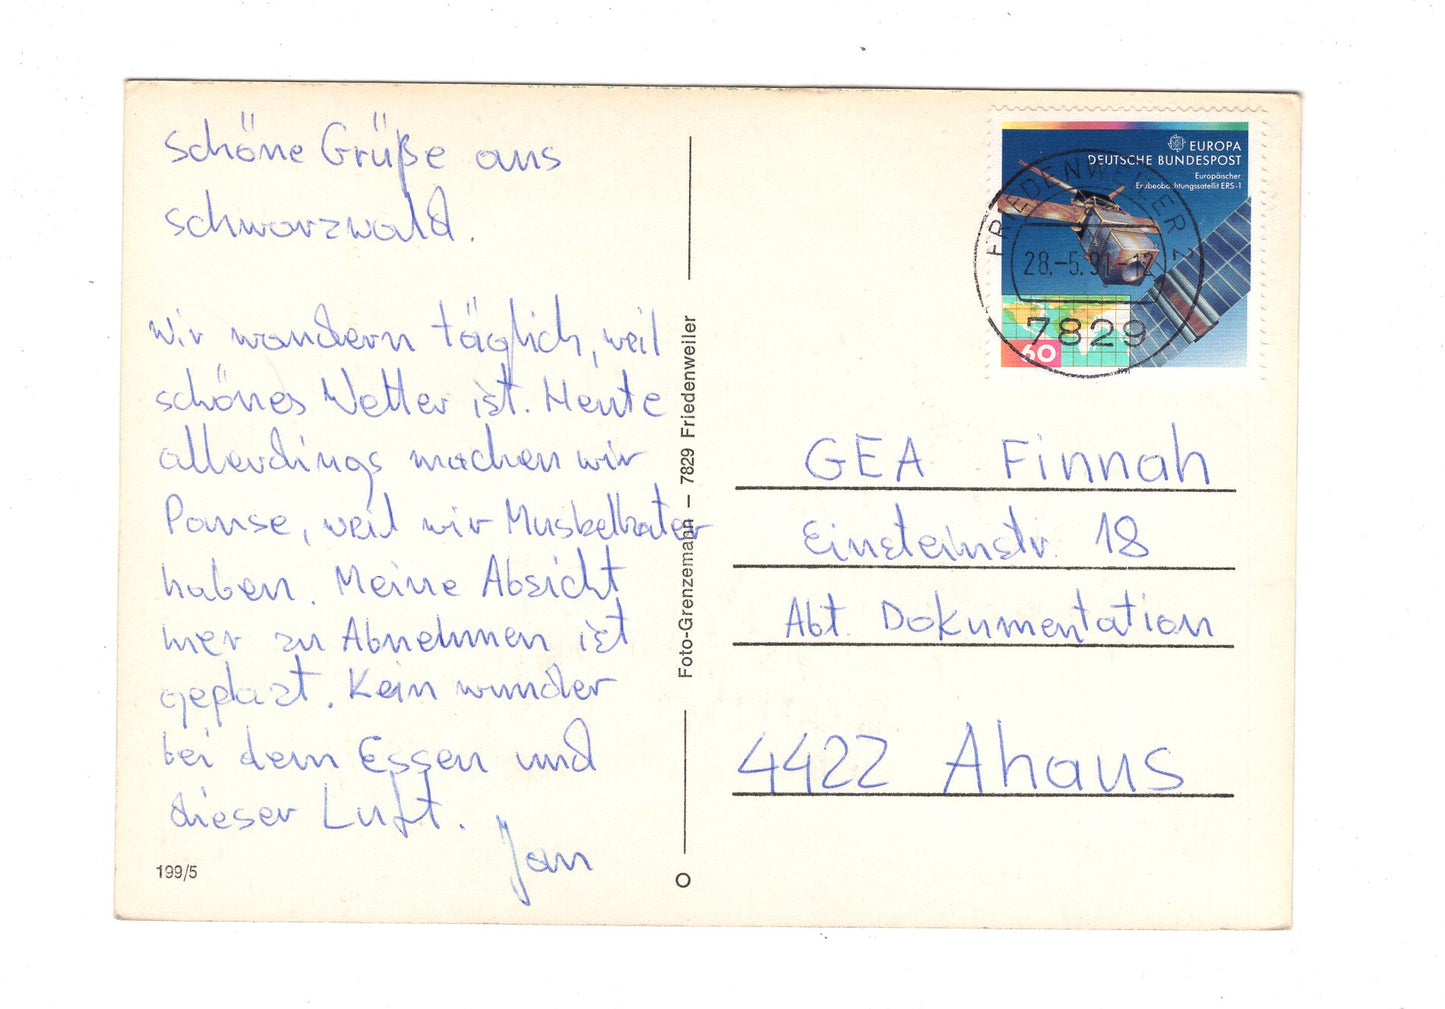 schöne Grüße aus
schwarzwald.
wir wandern täglich, weil
schönes Wetter ist. Heute
allerdings machen wir
Pause, weil wir Muskelkater
haben. Meine Absicht
hier zu Abnehmen ist
geplazt. Kein wunder
bei dem Essen und
dieser Luft.
Jan
199/5
Foto-Grenzemann – 7829 Friedenweiler
EUROPA
DEUTSCHE BUNDESPOST
Europäischer
Erdbeobachtungssatellit ERS-1
60
FRIEDENWEILER 2
28.-5.91-12
7829
GEA Finnah
Einsteinstr. 18
Abt. Dokumentation
4422 Ahaus